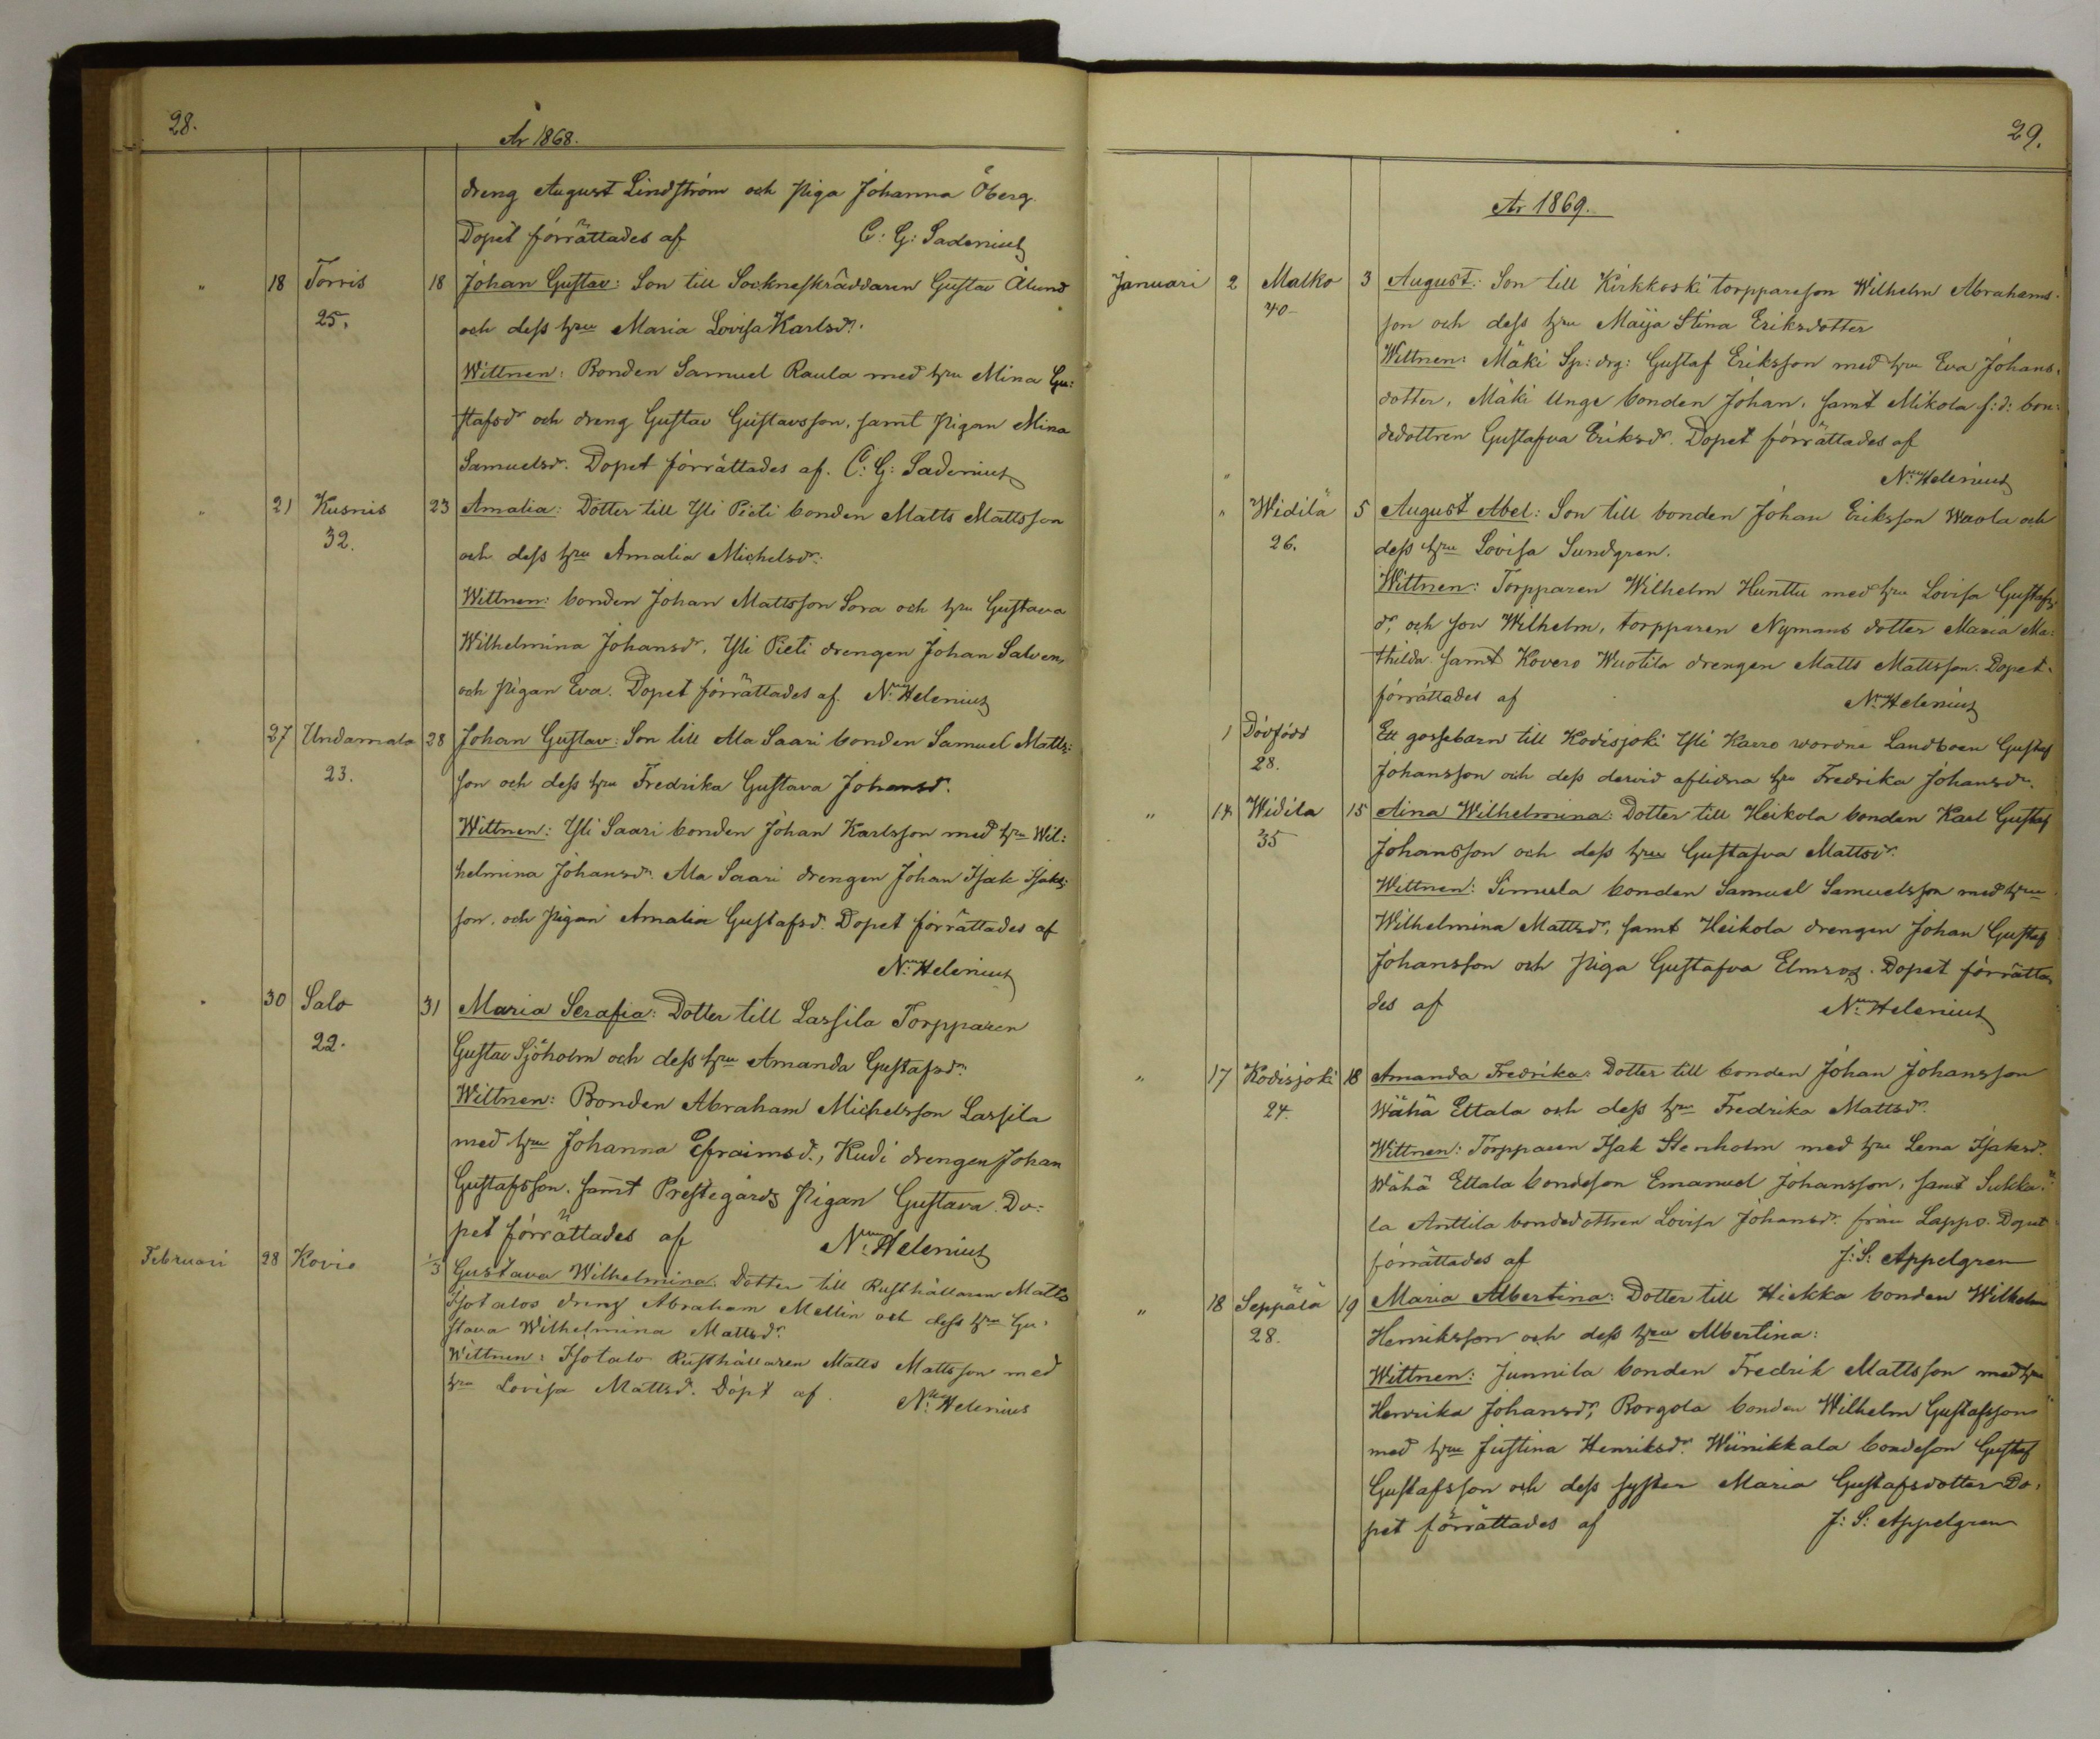 28.
År 1868.
dreng August Lindström och Piga Johanna Öberg
Dopet förrättades af C: G: Sadenius
" 18 Torvis 18 Johan Gustav: Son till Sockneskräddaren Gustav Ålund
25. och dess hru Maria Lovisa Karlsdr.
Wittnen: Bonden Samuel Raula med hru Mina Gu:
stafsdr och dreng Gustav Gustavsson, samt Pigan Mina
Samuelsdr. Dopet förrättades af. C: G: Sadenius
" 21 Kusnis 23 Amalia: Dotter till Yli Pieti bonden Matts Mattsson
32. och dess hru Amalia Michelsdr:
Wittnen: bonden Johan Mattsson Sora och hru Gustava
Wilhelmina Johansdr, Yli Pieti drengen Johan Salven,
och Pigan Eva. Dopet förrättades af. N: Helenius
" 27 Undamala 28 Johan Gustav: Son till Ala Saari bonden Samuel Matts:
23. son och dess hru Fredrika Gustava Johansd.
Wittnen: Yli Saari bonden Johan Karlsson med hru Wil:
helmina Johansdr. Ala Saari drengen Johan Isak Isaks:
son, och Pigan Amalia Gustafsd. Dopet förrättades af
N: Helenius
" 30 Salo 31 Maria Serafia: Dotter till Lassila Torpparen
22. Gustav Sjöholm och dess hru Amanda Gustafsdr.
Wittnen: Bonden Abraham Michelsson Lassila
med hru Johanna Efraimsd., Kudi drengen Johan
Gustafsson, samt Prestegårds Pigan Gustava. Do:
pet förrättades af N: Helenius
Februari 28 Kovio 1/3 Gustava Wilhelmina. Dotter till Rusthållaren Matts
Isotalos dreng Abraham Mellin och dess hru Gu:
stava Wilhelmina Mattsdr.
Wittnen: Isotalo Rusthållaren Matts Mattsson med
hru Lovisa Mattsd. Döpt af. N: Helenius
29.
År 1869.
Januari 2 Malko 3 August: Son till Kirkkoski torppareson Wilhelm Abrahams-
40 son och dess hru Maija Stina Eriksdotter
Wittnen: Mäki Sp: drg: Gustaf Eriksson med hru Eva Johans-
dotter, Mäki Unge bonden Johan, samt Mikola f: d: bon:
dedottren Gustafva Eriksdr. Dopet förrättades af
" N: Helenius
" Widilä 5 August Abel: Son till bonden Johan Eriksson Waola och
26. dess hru Lovisa Sundgren.
Wittnen: Torpparen Wilhelm Hunttu med hru Lovisa Gustafs
dr, och son Wilhelm, torpparen Nymans dotter Maria Ma:
thilda samt Kovero Wuotila drengen Matts Mattsson. Dopet
förrättades af N: Helenius
1 Dödfödd Ett gossebarn till Kodisjoki Yli Karro wordne Landboen Gustaf
28. Johansson och dess dervid aflidna hru Fredrika Johansdr.
" 14 Widila 15 Aina Wilhelmina: Dotter till Heikola bonden Karl Gustaf
35 Johansson och dess hru Gustafva Mattsdr.
Wittnen: Simula bonden Samuel Samuelsson med hru
Wilhelmina Mattsdr, samt Heikola drengen Johan Gustaf
Johansson och Piga Gustafva Elmros. Dopet förrätta
des af N: Helenius
" 17 Kodisjoki 18 Amanda Fredrika: Dotter till bonden Johan Johansson
24. Wähä Ettala och dess hru Fredrika Mattsdr.
Wittnen: Torpparen Isak Stenholm med hru Lena Isaksd.
Wähä Ettala bondeson Emanuel Johansson, samt Sukka:
la Anttila bondedottren Lovisa Johansdr. från Lappo. Dopet
förrättades af J: S: Appelgren
" 18 Seppälä 19 Maria Albertina: Dotter till Hiekka bonden Wilhelm
28. Henriksson och dess hru Albertina:
Wittnen: Junnila bonden Fredrik Mattsson med hru
Henrika Johansdr, Borgola bonden Wilhelm Gustafsson
med hru Justina Henriksdr. Wiinikkala bondeson Gustaf
Gustafsson och dess syster Maria Gustafsdotter Do:
pet förrättades af J: S: Appelgren